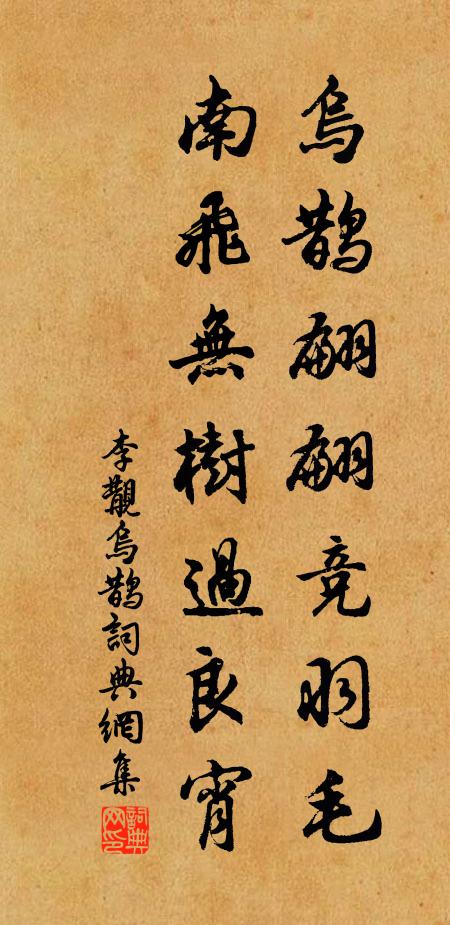 烏鵲翩翩竞羽毛
南飛無樹過良宵
李觀烏鵲詞典網集
詞典网印